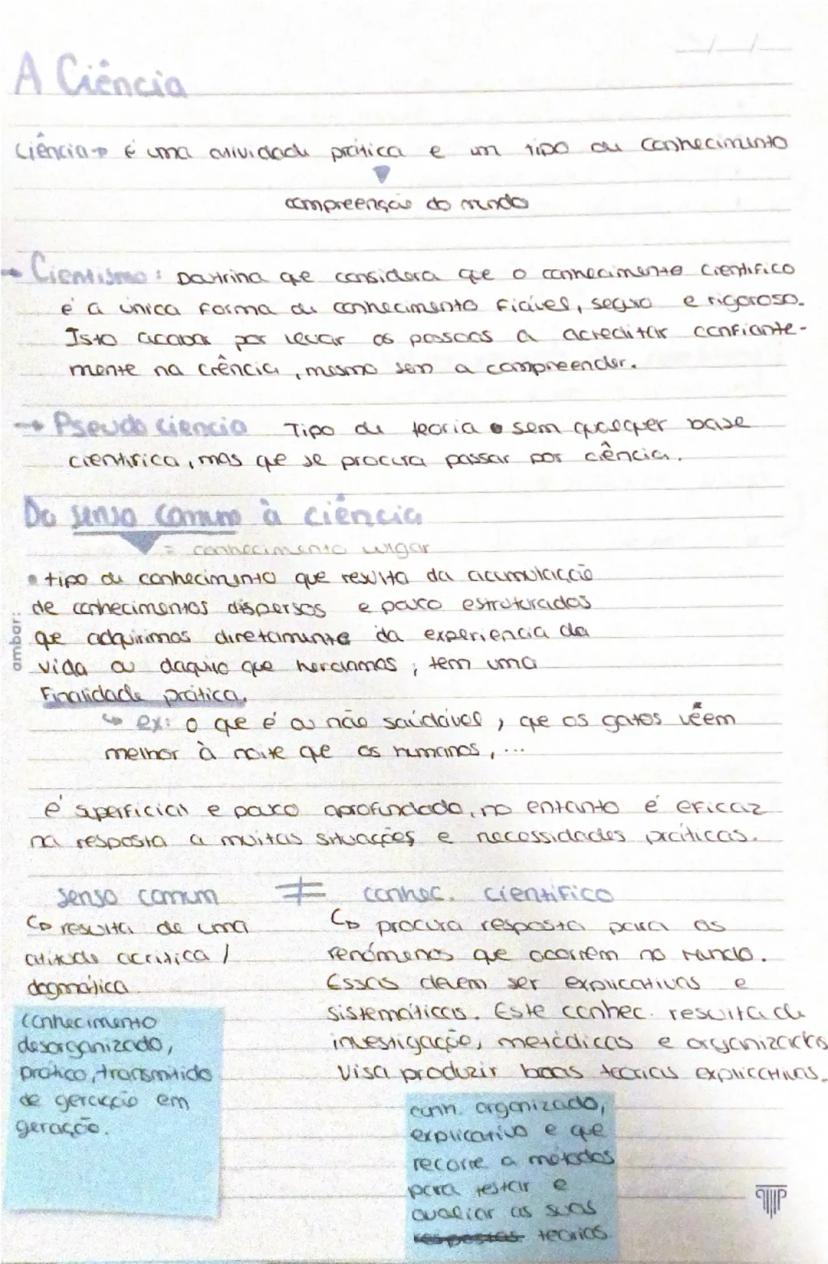 A Ciência
Ciência → é uma atividade prática e um tipo de conhecimento
compreenção do mundo
→ Cientismo: Doutrina que considera que o conhecimento cientifico
é a única forma de conhecimento fiável, seguro e rigoroso.
Isto acaba por levar as pessoas a acreditar confiante-
mente na crência, mesmo sem a compreender.
→ Pseudo ciencia Tipo de teoria sem qualquer base
cientifica, mas que se procura passar por ciência.
Do senso comum à ciência
= conhecimento vulgar
• tipo de conhecimento que resulta da acumulacção
de conhecimentos dispersos e pouco estruturados
que adquirimos diretamente da experiencia da
vida ou daquilo que herdamos; tem uma
Finalidade prática.
ambar:
↳ ex: o que é ou não saudável, que os gatos vêem
melhor à noite que os humanos, ...
é superficial e pouco aprofundado, no entanto é eficaz
na resposta a muitas situações e necessidades práticas.
senso comum ≠ conhec. cientifico
↳ resulta de uma
atitude acritica /
dogmática
conhecimento
desorganizado,
prático, transmitido
de geracção em
geração.
↳ procura resposta para os
fenómenos que ocorrem no Mundo.
Essas devem ser explicativas e
sistemáticas. Este conhec. resulta de
investigação, metódicas e organizadas
Visa produzir boas teorias explicativas.
conh. organizado,
explicativo e que
recorre a métodos
para testar e
avaliar as suas
respostas teorias